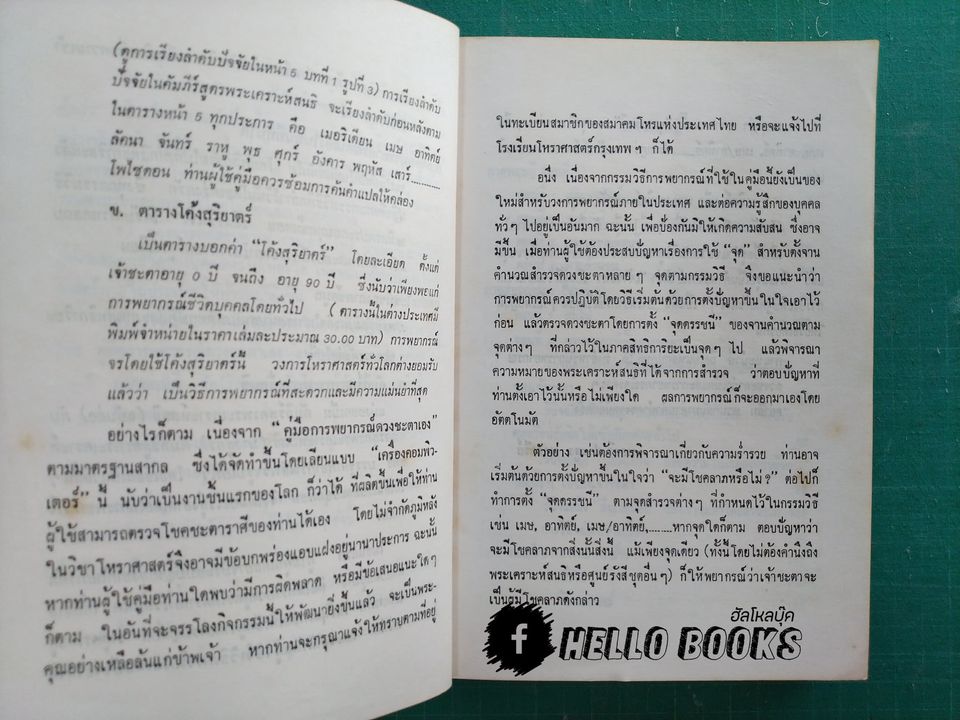 (ดูการเรียงลำดับปัจจัยในหน้า 5 บทที่ 1 รูปที่ 3) การเรียงลำดับ
ปัจจัยในคัมภีร์สูตรพระเคราะห์สนธิ จะเรียงลำดับก่อนหลังตาม
ในตารางหน้า 5 ทุกประการ คือ เมอริเดียน เมษ อาทิตย์
ลัคนา จันทร์ ราหู พุธ ศุกร์ อังคาร พฤหัส เสาร์..........
โพไซดอน ท่านผู้ใช้คู่มือควรซ้อมการค้นคำแปลให้คล่อง
ข. ตารางโค้งสุริยาตร์
เป็นตารางบอกค่า “โค้งสุริยาตร์” โดยละเอียด ตั้งแต่
เจ้าชะตาอายุ 0 ปี จนถึง อายุ 90 ปี ซึ่งนับว่าเพียงพอแก่
การพยากรณ์ชีวิตบุคคลโดยทั่วไป (ตารางนี้ในต่างประเทศมี
พิมพ์จำหน่ายในราคาเล่มละประมาณ 30.00 บาท) การพยากรณ์
จรโดยใช้โค้งสุริยาตร์นี้ วงการโหราศาสตร์ทั่วโลกต่างยอมรับ
แล้วว่า เป็นวิธีการพยากรณ์ที่สะดวกและมีความแม่นยำที่สุด
อย่างไรก็ตาม เนื่องจาก “คู่มือการพยากรณ์ดวงชะตาเอง”
ตามมาตรฐานสากล ซึ่งได้จัดทำขึ้นโดยเลียนแบบ “เครื่องคอมพิว-
เตอร์” นี้ นับว่าเป็นงานชิ้นแรกของโลก ก็ว่าได้ ที่ผลิตขึ้นเพื่อให้ท่าน
ผู้ใช้สามารถตรวจโชคชะตาราศีของท่านได้เอง โดยไม่จำกัดภูมิหลัง
ในวิชาโหราศาสตร์จึงอาจมีข้อบกพร่องแอบแฝงอยู่นานาประการ ฉะนั้น
หากท่านผู้ใช้คู่มือท่านใดพบว่ามีการผิดพลาด หรือมีข้อเสนอแนะใดๆ
ก็ตาม ในอันที่จะจรรโลงกิจกรรมนี้ให้พัฒนายิ่งขึ้นแล้ว จะเป็นพระ-
คุณอย่างเหลือล้นแก่ข้าพเจ้า หากท่านจะกรุณาแจ้งให้ทราบตามที่อยู่
ในทะเบียนสมาชิกของสมาคมโหรแห่งประเทศไทย หรือจะแจ้งไปที่
โรงเรียนโหราศาสตร์กรุงเทพฯ ก็ได้
อนึ่ง เนื่องจากกรรมวิธีการพยากรณ์ที่ใช้ในคู่มือนี้ยังเป็นของ
ใหม่สำหรับวงการพยากรณ์ภายในประเทศ และต่อความรู้สึกของบุคคล
ทั่วๆ ไปอยู่เป็นอันมาก ฉะนั้น เพื่อป้องกันมิให้เกิดความสับสน ซึ่งอาจ
มีขึ้น เมื่อท่านผู้ใช้ต้องประสบปัญหาเรื่องการใช้ “จุด” สำหรับตั้งจาน
คำนวณสำรวจดวงชะตาหลายๆ จุดตามกรรมวิธี จึงขอแนะนำว่า
การพยากรณ์ควรปฏิบัติโดยวิธีเริ่มต้นด้วยการตั้งปัญหาขึ้นในใจเอาไว้
ก่อน แล้วตรวจดวงชะตาโดยการตั้ง “จุดดรรชนี” ของจานคำนวณตาม
จุดต่างๆ ที่กล่าวไว้ในภาคสิทธิการิยะเป็นจุดๆ ไป แล้วพิจารณา
ความหมายของพระเคราะห์สนธิที่ได้จากการสำรวจ ว่าตอบปัญหาที่
ท่านตั้งเอาไว้นั้นหรือไม่เพียงใด ผลการพยากรณ์ก็จะออกมาเองโดย
อัตตโนมัติ
ตัวอย่าง เช่นต้องการพิจารณาเกี่ยวกับความร่ำรวย ท่านอาจ
เริ่มต้นด้วยการตั้งปัญหาขึ้นในใจว่า “จะมีโชคลาภหรือไม่?” ต่อไปก็
ทำการตั้ง “จุดดรรชนี” ตามจุดสำรวจต่างๆ ที่กำหนดไว้ในกรรมวิธี
เช่น เมษ, อาทิตย์, เมษ/อาทิตย์,........หากจุดใดก็ตาม ตอบปัญหาว่า
จะมีโชคลาภจากสิ่งนั้นสิ่งนี้ แม้เพียงจุดเดียว (ทั้งนี้โดยไม่ต้องคำนึงถึง
พระเคราะห์สนธิหรือศูนย์รังสีชุดอื่นๆ) ก็ให้พยากรณ์ว่าเจ้าชะตาจะ
เป็นผู้มีโชคลาภดังกล่าว
ฮัลโหลบุ๊ค
f HELLO BOOKS